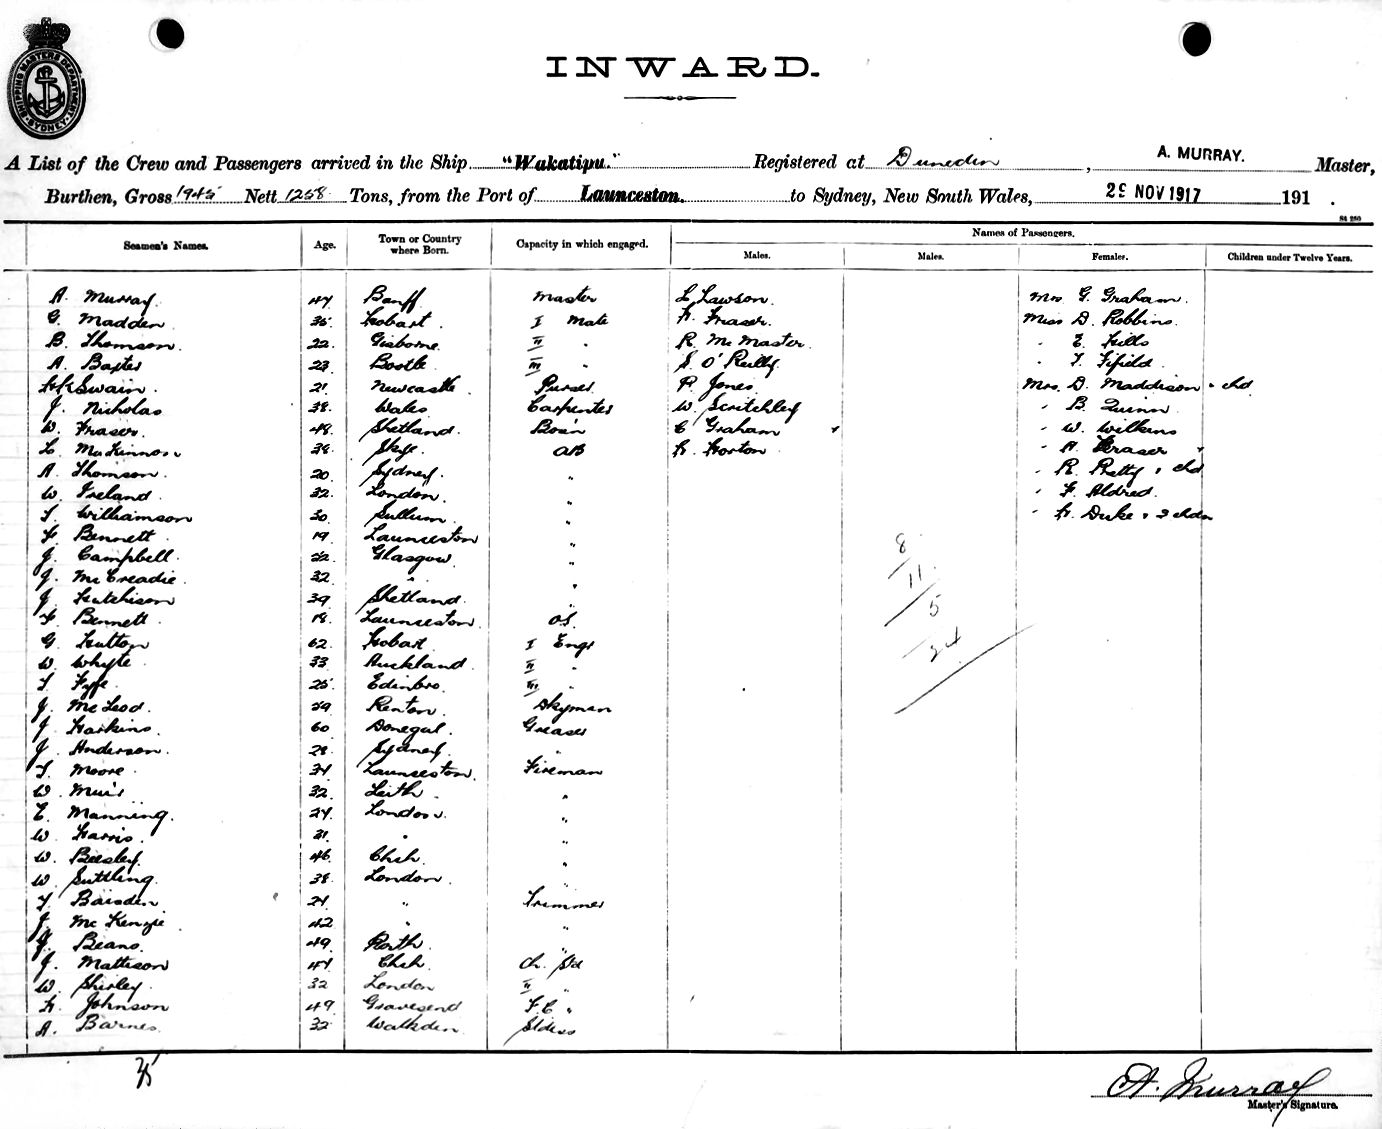 SHIPPING MASTERS DEPARTMENT SYDNEY
INWARD.
A List of the Crew and Passengers arrived in the Ship "Wakatipu." Registered at Dunedin, A. MURRAY. Master,
Burthen, Gross 1945 Nett 1258 Tons, from the Port of Launceston. to Sydney, New South Wales, 29 NOV 1917 191 .
Seamen's Names. Age. Town or Country where Born. Capacity in which engaged. Names of Passengers.
Males. Males. Females. Children under Twelve Years.
A. Murray 47 Banff Master L Lawson. Mrs G. Graham.
G. Madden 35 Hobart. I Mate H. Fraser. Miss D. Robbins.
B. Thomson. 22 Gisborne II " R. McMaster. " E. Hills
A. Baxter 23 Bootle III " S. O'Reilly " T. Fifield.
Swain. 21 Newcastle Purser P. Jones Mrs. D. Maddison & chd
J. Nicholas 38 Wales Carpenter W. Scritchley " B. Quinn
W. Fraser. 48 Shetland. Bos'n C Graham " W. Wilkins
L. MacKinnon 38 Skye. AB H. Horton " A. Fraser
A. Thomson 20 Sydney. " " R. Pretty & chd
W. Ireland. 32 London. " " F. Aldred.
T. Williamson 30 " " H. Duke & 3 chdn
F. Bennett 19 Launceston "
J. Campbell. 22 Glasgow. "
J. McCreadie. 32 " "
J. Hutchison 39 Shetland. "
F. Bennett. 18 Launceston. OS.
G. Hutton 62 Hobart. I Engr
W. Whyte 33 Auckland. II "
T. Fyfe. 25 Edinbro. III "
J. McLeod. 29 Renton. Dkyman
J. Harkins. 60 Donegal. Greaser
J. Anderson. 28 Sydney. "
T. Moore. 34 Launceston. Fireman
W. Muir 32 Leith. "
E. Manning. 24 London. "
W. Harris. 31 " "
W. Beesley. 46 Chch. "
W. Suttling. 38 London. "
T. Baisden 21 " Trimmer
J. McKenzie. 42 " "
J. Beano. 49 Perth. "
J. Mattison 44 Chch. Ch. Std
W. Shirley. 32 London II "
H. Johnson 49 Gravesend F.C "
A. Barnes. 32 Walkden. Stdess
8
11
5
24
35
A. Murray
Master's Signature.